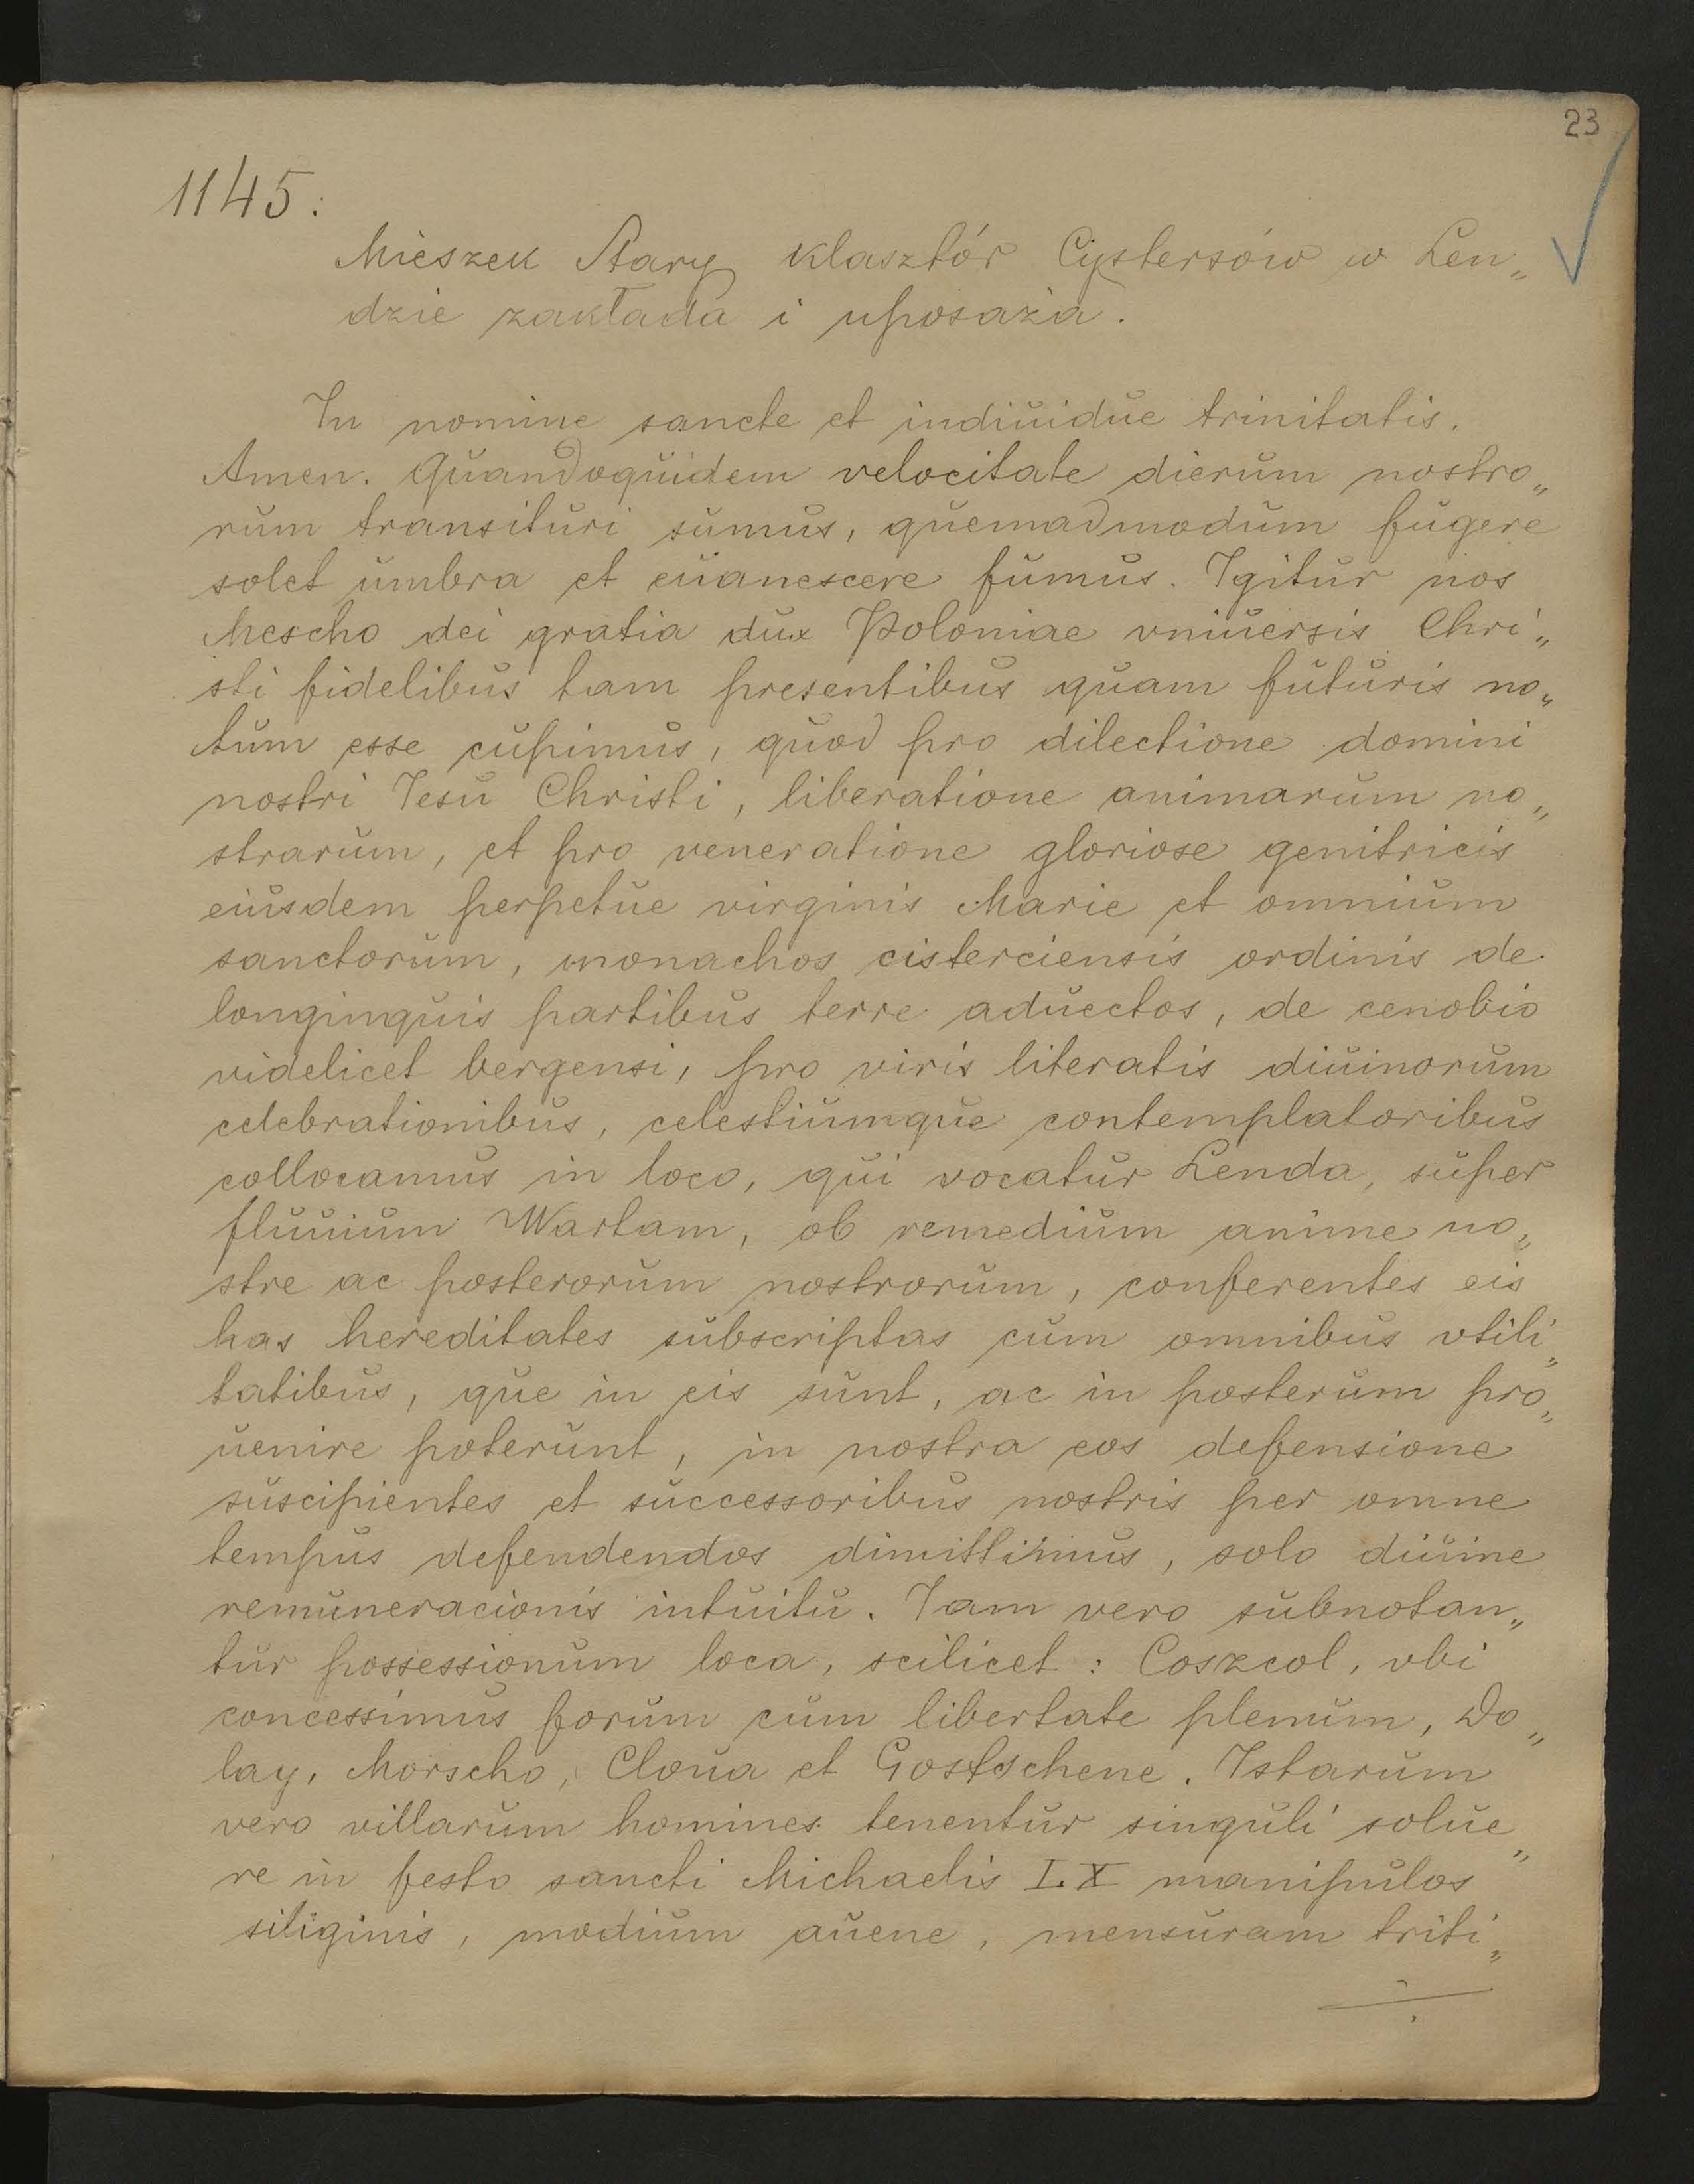 23
1145.
Mieszek Stary klasztór Cystersów w Len„
dzie zakłada i uposaża.
In nomine sancte et indiuidue trinitatis.
Amen. Quandoquidem velocitate dierum nostro„
rum transituri sumus, quemadmodum fugere
solet umbra et euanescere fumus. Igitur nos
Mescho dei gratia dux Poloniae vniuersis Chri„
sti fidelibus tam presentibus quam futuris no„
tum esse cupimus, quod pro dilectione domini
nostri Iesu Christi, liberatione animarum no„
strarum, et pro veneratione gloriose genitricis
eiusdem perpetue virginis Marie et omnium
sanctorum, monachos cisterciensis ordinis de
longinquis partibus terre aduectos, de cenobio
videlicet bergensi, pro viris literatis diuinorum
celebrationibus, celestiumque contemplatoribus
collocamus in loco, qui vocatur Lenda, super
fluuium Wartam, ob remedium anime no„
stre ac posterorum nostrorum, conferentes eis
has hereditates subscriptas cum omnibus vtili„
tatibus, que in eis sunt, ac in posterum pro„
uenire poterunt, in nostra eos defensione
suscipientes et successoribus nostris per omne
tempus defendendos dimittimus, solo diuine
remuneracionis intuitu. Iam vero subnotan„
tur possessionum loca, scilicet: Coszcol, vbi
concessimus forum cum libertate plenum, Do„
lay, Morscho, Cloua et Gostschene. Istarum
vero villarum homines tenentur singuli solue„
re in festo sancti Michaelis I.X manipulos
siliginis, modium auene, mensuram triti„